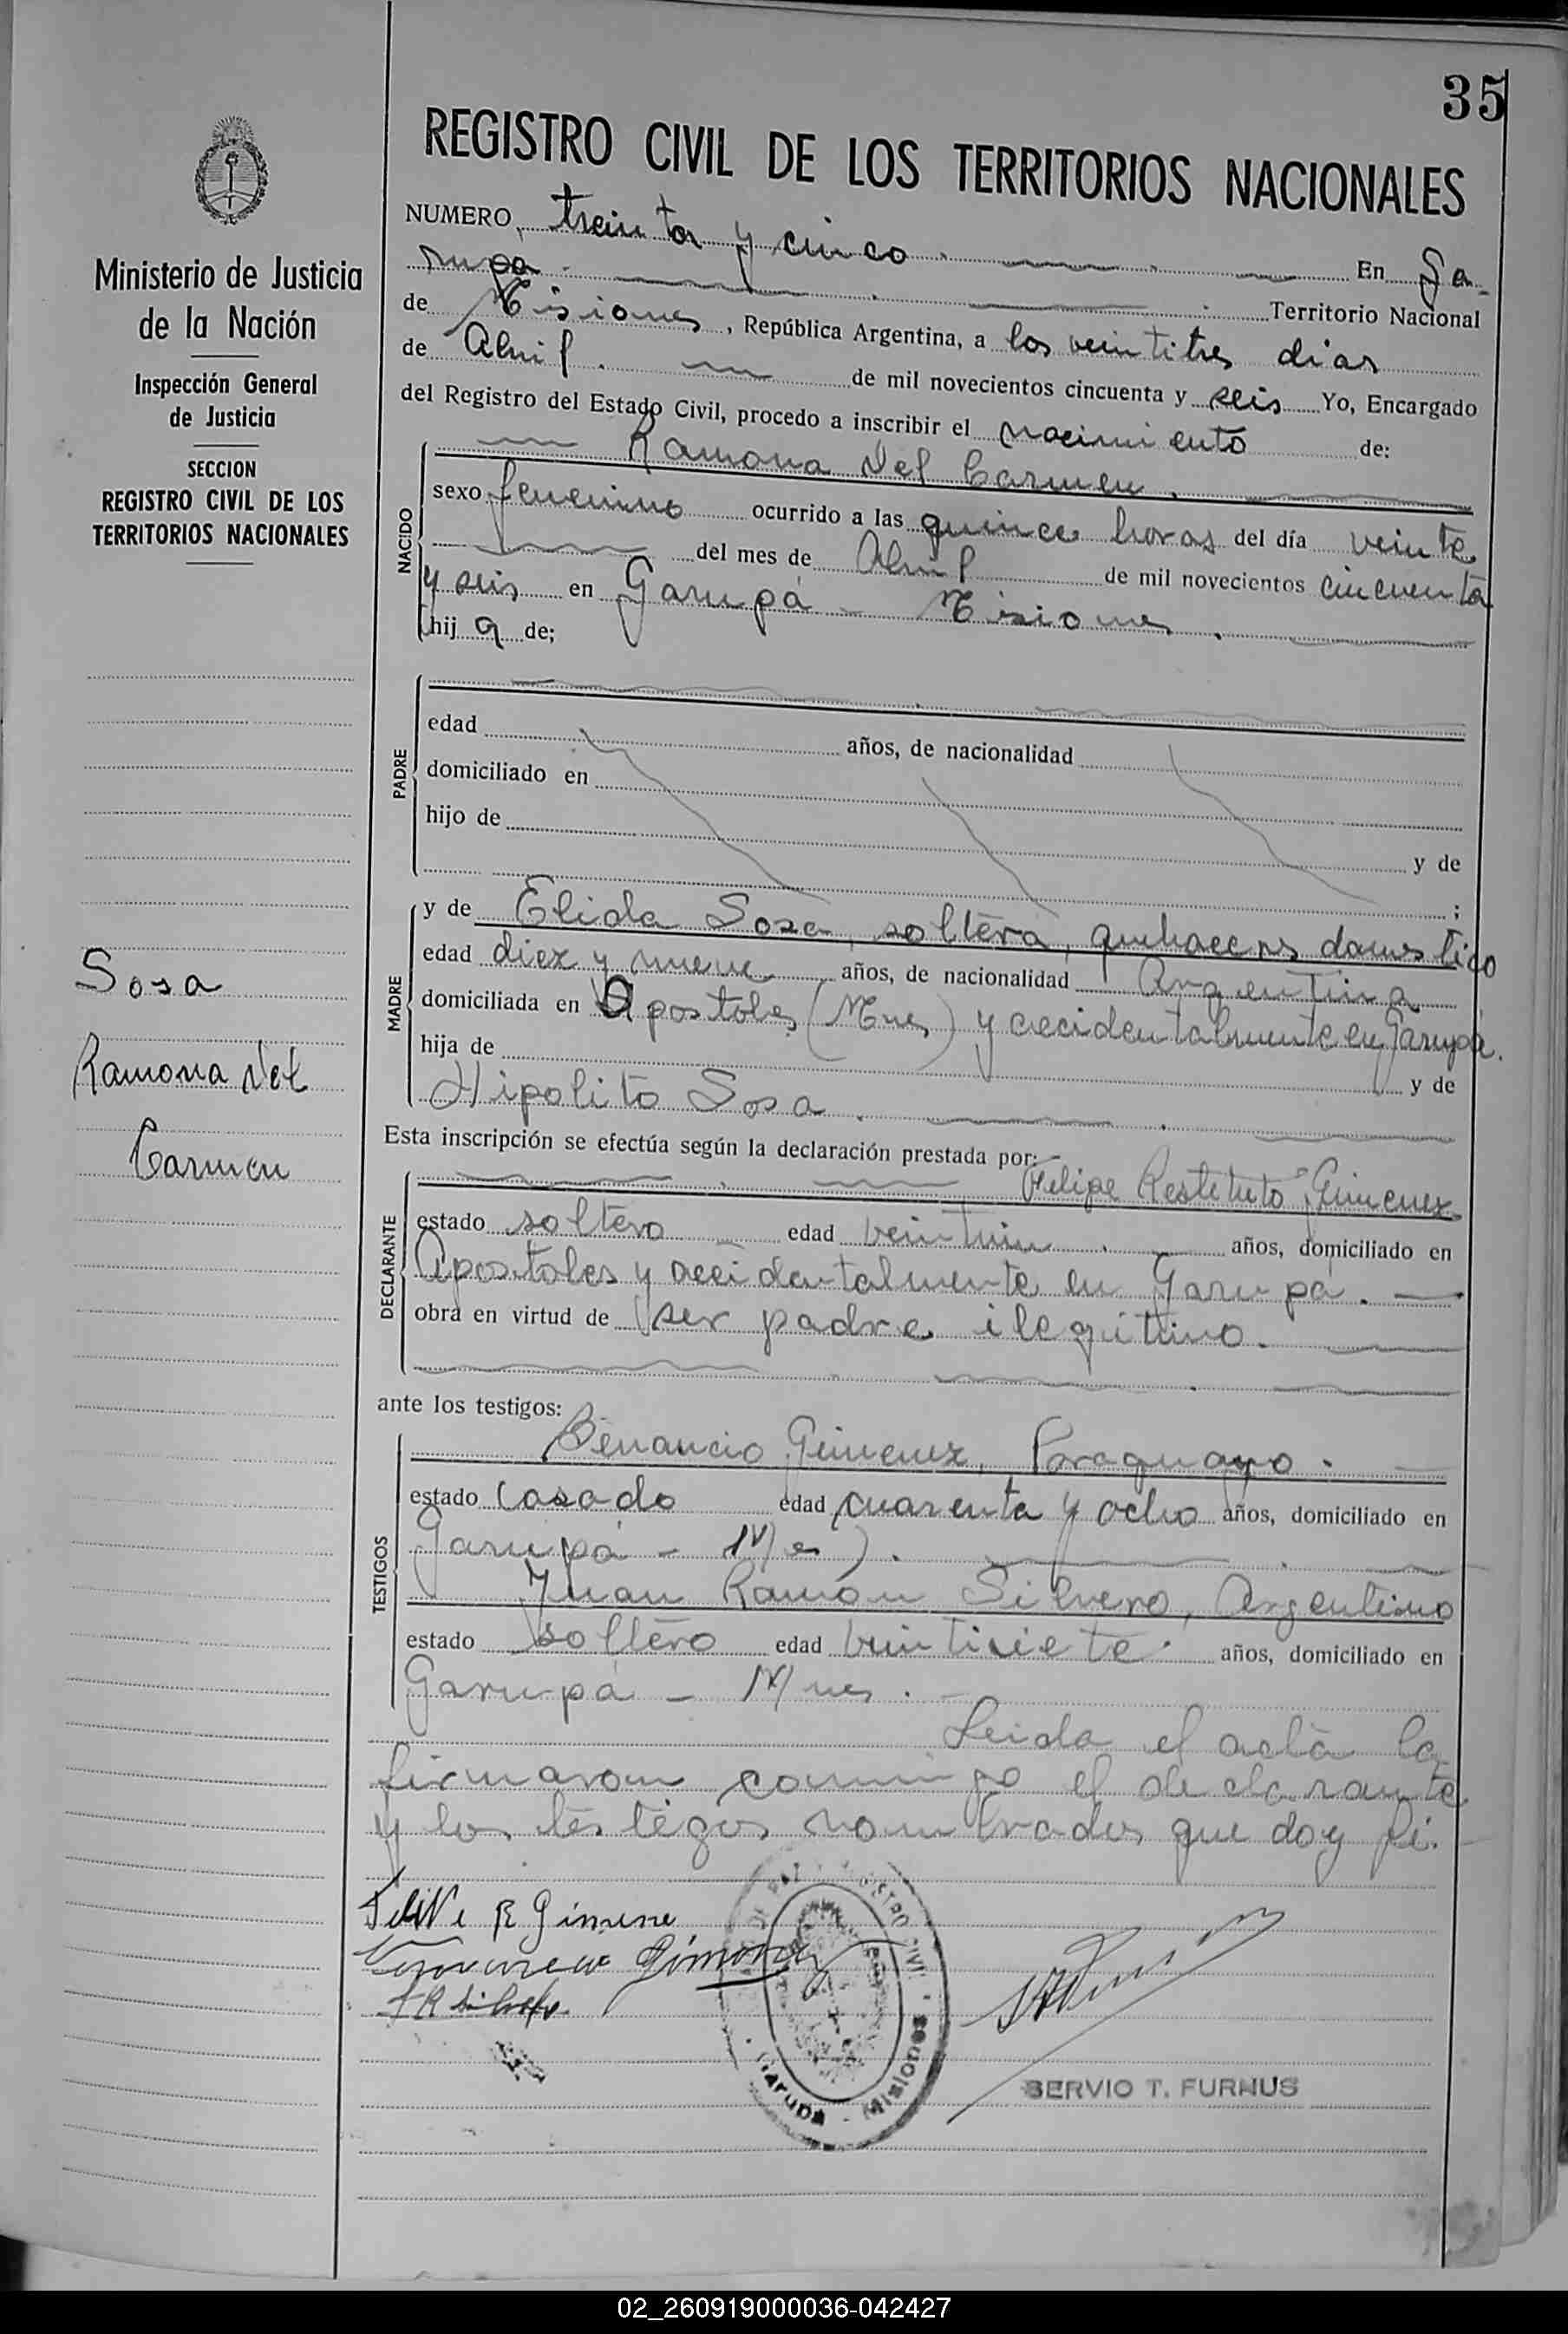 35
REGISTRO CIVIL DE LOS TERRITORIOS NACIONALES
Ministerio de Justicia
de la Nación
Inspección General
de Justicia
SECCION
REGISTRO CIVIL DE LOS
TERRITORIOS NACIONALES
Sosa
Ramona del
Carmen
NUMERO treinta y cinco. En Ga-
rupa. Territorio Nacional
de Misiones, República Argentina, a los veintitres dias
de Abril. de mil novecientos cincuenta y seis Yo, Encargado
del Registro del Estado Civil, procedo a inscribir el nacimiento de:
NACIDO
Ramona del Carmen.
sexo femenino ocurrido a las quince horas del día veinte
del mes de Abril de mil novecientos cincuenta
y seis en Garupá - Misiones.
hija de;
PADRE
edad años, de nacionalidad
domiciliado en
hijo de
y de
;
MADRE
y de Elida Sosa, soltera, quehaceres domestico
edad diez y nueve años, de nacionalidad Argentina
domiciliada en Apostoles (Mnes) y accidentalmente en Garupá.
hija de
y de
Hipolito Sosa.
Esta inscripción se efectúa según la declaración prestada por:
DECLARANTE
Felipe Restituto Gimenez
estado soltero edad veintiun. años, domiciliado en
Apostoles y accidentalmente en Garupá.
obra en virtud de ser padre ilegitimo.
ante los testigos:
TESTIGOS
Benancio Gimenez, Paraguayo.
estado casado edad cuarenta y ocho años, domiciliado en
Garupá -
Juan Ramon Silvero, Argentino
estado soltero edad veintisiete. años, domiciliado en
Garupá - Mnes.
Leida el acta la
firmaron conmigo el declarante
y los testigos nombrados que doy fé.
R Gimene
Garupá - Misiones
SERVIO T. FURNUS
02_260919000036-042427